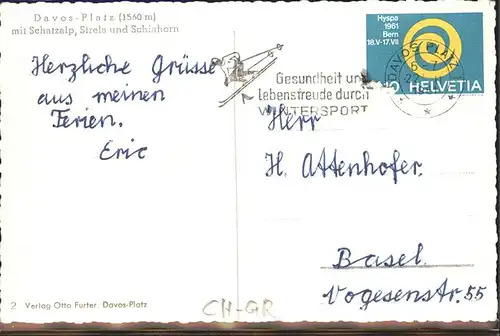 Davos-Platz (1560 m)
mit Schatzalp, Strela und Schiahorn
Herzliche Grüsse
aus meinen
Ferien.
Eric
Gesundheit und
Lebensfreude durch
WINTERSPORT
DAVOS PLATZ
Hyspa
1961
Bern
18.V-17.VII
HELVETIA
Herr
H. Attenhofer.
Basel.
Vogesenstr. 55
2 Verlag Otto Furter, Davos-Platz
CH-GR